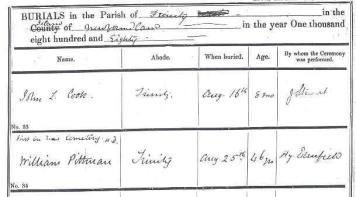 BURIALS in the Parish of Trinity in the
Island
County of Newfoundland in the year One thousand
eight hundred and Eighty
Name. Abode. When buried. Age. By whom the Ceremony was performed.
John L. Cook. Trinity. Aug 16th 8 mo
No. 33
First in New Cemetery
William Pittman Trinity Aug 25th 46 yrs Hy
No. 34